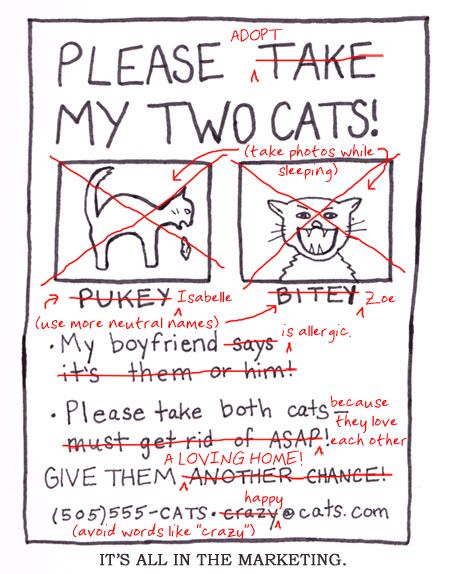 ADOPT
PLEASE TAKE
MY TWO CATS!
(take photos while
sleeping)
PUKEY Isabelle BITEY Zoe
(use more neutral names)
• My boyfriend says is allergic.
it's them or him!
• Please take both cats— because
they love
must get rid of ASAP! each other
A LOVING HOME!
GIVE THEM ANOTHER CHANCE!
happy
(505)555-CATS • crazy@cats.com
(avoid words like "crazy")
IT'S ALL IN THE MARKETING.